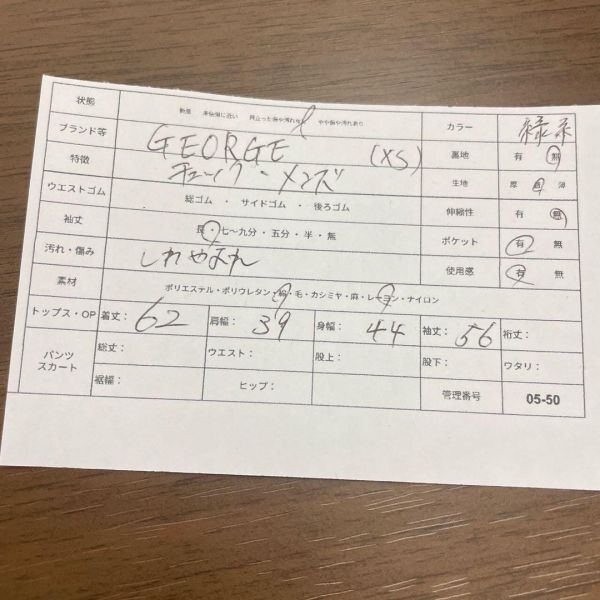 状態 新品 未使用に近い 目立った傷や汚れなし やや傷や汚れあり カラー 緑系
ブランド等 GEORGE (XS) 裏地 有 無
特徴 チェック・メンズ 生地 厚 普 薄
ウエストゴム 総ゴム ・ サイドゴム ・ 後ろゴム 伸縮性 有 無
袖丈 長・七〜九分・五分・半・無 ポケット 有 無
汚れ・傷み しわやよれ 使用感 有 無
素材 ポリエステル・ポリウレタン・綿・毛・カシミヤ・麻・レーヨン・ナイロン
トップス・OP 着丈：62 肩幅：39 身幅：44 袖丈：56 裄丈：
パンツ スカート 総丈： ウエスト： 股上： 股下： ワタリ：
裾幅： ヒップ： 管理番号 05-50